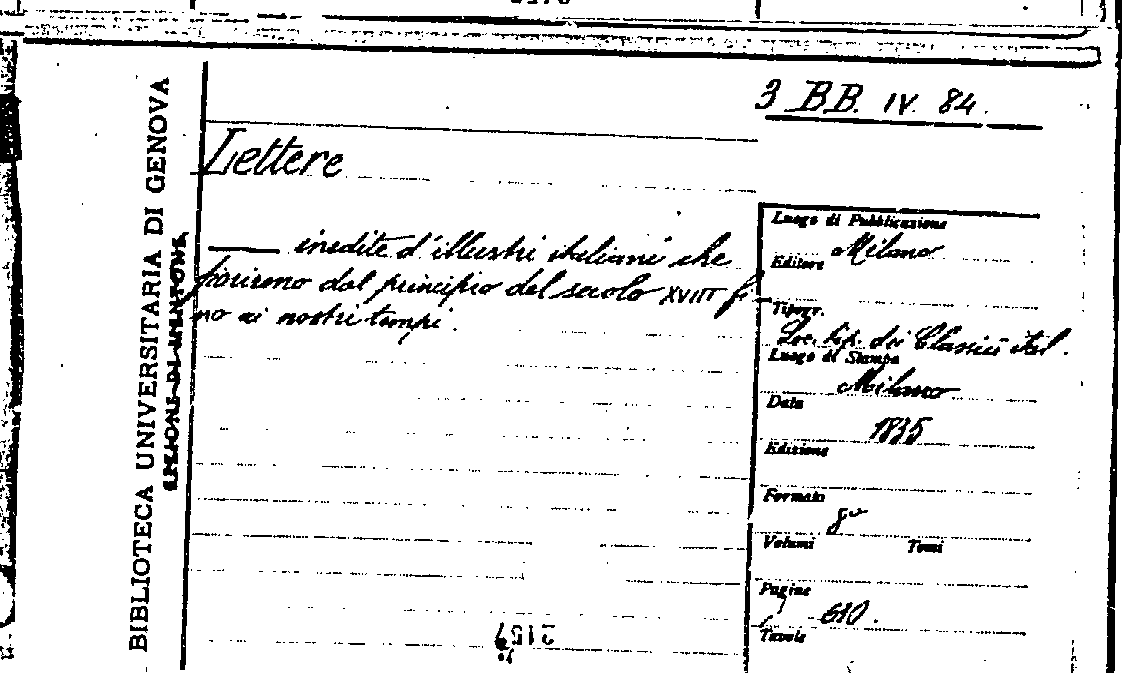 3 BB. IV. 84.
BIBLIOTECA UNIVERSITARIA DI GENOVA
Lettere
inedite d'illustri italiani che
fiorirono dal principio del secolo XVIII fi-
no ai nostri tempi.
Luogo di Pubblicazione
Milano
Editore
Tipogr.
Soc. tip. dei Classici ital.
Luogo di Stampa
Milano
Data
1835
Edizione
Formato
8º
Volumi Tomi
Pagine
610.
Tavole
2157